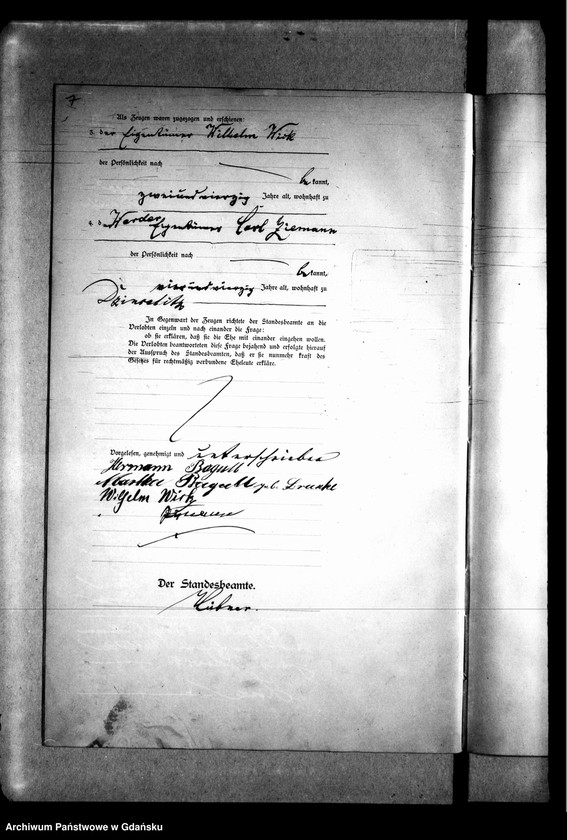 7
Als Zeugen waren zugezogen und erschienen:
3. der Eigentümer Wilhelm Wirk
der Persönlichkeit nach
be kannt,
zweiundvierzig Jahre alt, wohnhaft zu
4. der Eigentümer Carl Ziemann
der Persönlichkeit nach
be kannt,
vierundvierzig Jahre alt, wohnhaft zu
In Gegenwart der Zeugen richtete der Standesbeamte an die
Verlobten einzeln und nach einander die Frage:
ob sie erklären, daß sie die Ehe mit einander eingehen wollen.
Die Verlobten beantworteten diese Frage bejahend und erfolgte hierauf
der Ausspruch des Standesbeamten, daß er sie nunmehr kraft des
Gesetzes für rechtmäßig verbundene Eheleute erkläre.
Vorgelesen, genehmigt und unterschrieben
Hermann
geb.
Wilhelm Wirk
Der Standesbeamte.
Hübner.
Archiwum Państwowe w Gdańsku